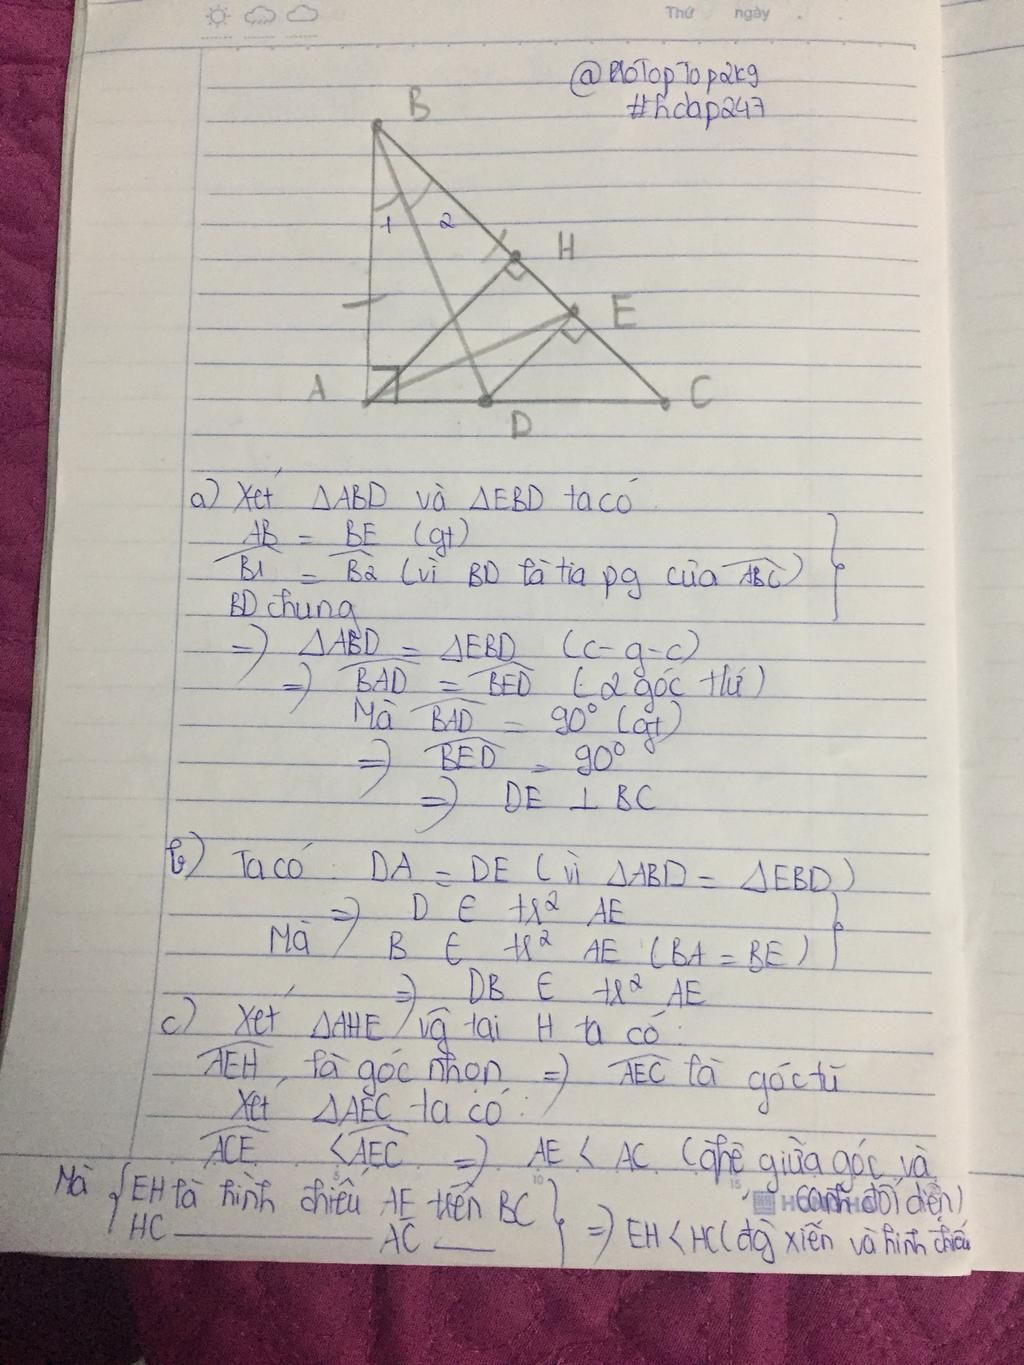 Thứ ngày
@PloTopTop2k9
#hdap247
B
1 2
H
E
A
D
C
a) Xét ΔABD và ΔEBD ta có
AB = BE (gt)
B1 = B2 (vì BD là tia pg của ABC)
BD chung
=> ΔABD = ΔEBD (c-g-c)
=> BAD = BED (2 góc tứ)
Mà BAD = 90° (gt)
=> BED = 90°
=> DE ⊥ BC
b) Ta có: DA = DE (vì ΔABD = ΔEBD)
=> D ∈ tr² AE
Mà B ∈ tr² AE (BA = BE)
=> DB ∈ tr² AE
c) Xét ΔAHE vg tại H ta có:
AEH là góc nhọn => AEC là góc tù
Xét ΔAEC ta có:
ACE < AEC => AE < AC (qhệ giữa góc và
cạnh đối diện)
Mà { EH là hình chiếu AE trên BC
HC ——— AC —
} => EH < HC (đg xiên và hình chiếu